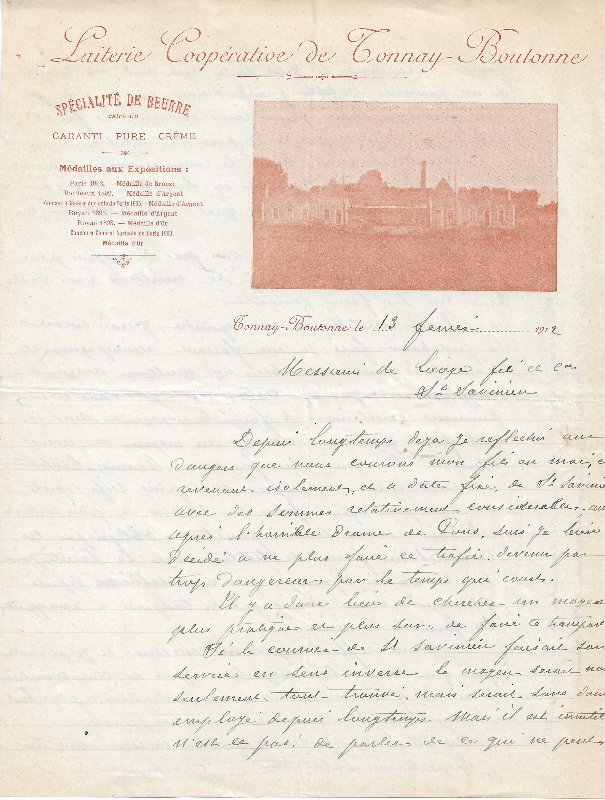 Laiterie Coopérative de Tonnay-Boutonne
SPÉCIALITÉ DE BEURRE
extra-fin
GARANTI PURE CRÈME
Médailles aux Expositions :
Paris 1892. Médaille de Bronze
Bordeaux 1892. Médaille d'Argent
Concours Général Agricole de Paris 1895. - Médaille d'Argent
Royan 1895. — Médaille d'Argent
Royan 1895. — Médaille d'Or
Concours Général Agricole de Paris
Médaille d'Or
Tonnay-Boutonne le 13 fevrier 1912
Messieurs de fils et Cie
St Savinien
Depuis longtemps deja je reflechis aux
dangers que nous courons mon fils ou moi, en
revenant isolement, et a date fixe, de St Savinien
avec des sommes relativement considerables, aussi
après l'horrible drame de suis je bien
décidé a ne plus faire ce trafic devenu par
trop dangereux par le temps qui court.
Il y a donc lieu de chercher un moyen
plus pratique et plus sur de faire ce transport
Si le courrier de St Savinien faisait son
service en sens inverse le moyen serait non
seulement tout trouvé, mais serait sans doute
employé depuis longtemps. Mais il est inutile
n'est ce pas, de parler de ce qui ne peut